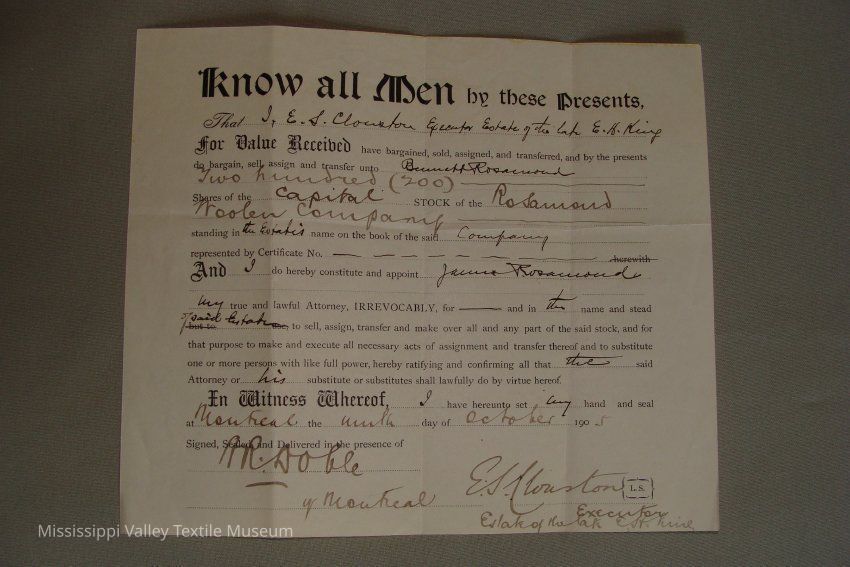 Know all Men by these Presents,
That I, E. S. Clouston Executor Estate of the late E. H. King
For Value Received have bargained, sold, assigned, and transferred, and by the presents
do bargain, sell, assign and transfer unto Bennett Rosamond
Two hundred (200)
Shares of the Capital STOCK of the Rosamond
Woolen Company
standing in the Estate's name on the book of the said Company
represented by Certificate No. herewith
And I do hereby constitute and appoint James Rosamond
my true and lawful Attorney, IRREVOCABLY, for and in the name and stead
of said Estate to sell, assign, transfer and make over all and any part of the said stock, and for
that purpose to make and execute all necessary acts of assignment and transfer thereof and to substitute
one or more persons with like full power, hereby ratifying and confirming all that the said
Attorney or his substitute or substitutes shall lawfully do by virtue hereof.
In Witness Whereof, I have hereunto set my hand and seal
at Montreal the ninth day of October 1905
Signed, Sealed and Delivered in the presence of
Doble
of Montreal
E. S. Clouston L.S.
Executor
Estate of the late E. H. King
Mississippi Valley Textile Museum